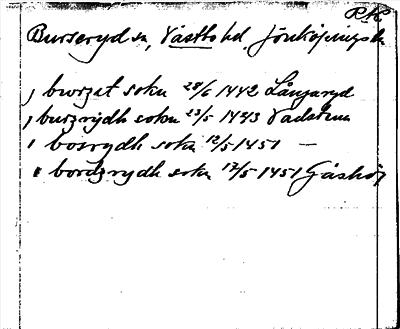 R.K.
Burseryd sn, Västbo hd. Jönköpings län
j burzat sokn 28/6 1442 Långaryd
j burzrydh sokn 23/5 1443 Vadstena
i bosrydh sokn 12/5 1451 —
i bordzrydh sokn 12/5 1451 Gåshöj